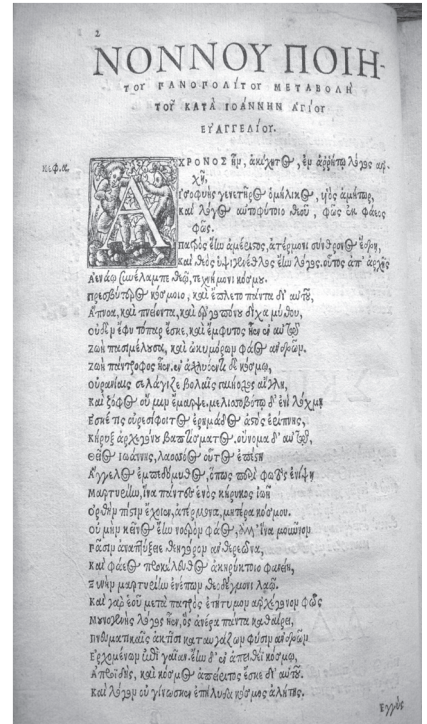 2
ΝΟΝΝΟΥ ΠΟΙΗ-
ΤΟΥ ΠΑΝΟΠΟΛΙΤΟΥ ΜΕΤΑΒΟΛΗ
ΤΟΥ ΚΑΤΑ ΙΩΑΝΝΗΝ ΑΓΙΟΥ
ΕΥΑΓΓΕΛΙΟΥ.
Κεφ. α.
ΑΧΡΟΝΟΣ ἦν, ἀκίχητος, ἐν ἀῤῥήτῳ λόγος ἀρ-
χῇ,
Ἰσοφυὴς γενετῆρος ὁμήλικος, υἱὸς ἀμήτωρ,
Καὶ λόγος αὐτοφύτοιο θεοῦ, φῶς ἐκ φάεος
φῶς.
Πατρὸς ἔην ἀμέριστος, ἀτέρμονι σύνθρονος ἕδρῃ,
Καὶ θεὸς ὑψιγένεθλος ἔην λόγος. οὗτος ἀπ' ἀρχῆς
Ἀενάῳ συνέλαμπε θεῷ, τεχνήμονι κόσμου.
Πρεσβύτερος κόσμοιο, καὶ ἔπλετο πάντα δι' αὐτοῦ,
Ἄπνοα, καὶ πνείοντα, καὶ ἐργοπόνου δίχα μύθου,
Οὐδὲν ἔφυ τόπερ ἔσκε, καὶ ἔμφυτος ἦεν ἐν αὐτῷ
Ζωὴ πασιμέλουσα, καὶ ὠκυμόρων φάος ἀνδρῶν.
Ζωὴ πάντροφος ἦεν. ἐν κόσμῳ,
Οὐρανίαις σελάγιζε βολαῖς γαιήοχος αἴγλη,
Καὶ ζόφος οὔ μιν ἔμαρψε. μελισσοβότῳ δ' ἐνὶ λόχμῃ
Ἔσκέ τις οὐρεσίφοιτος ἐρημάδος ἀστὸς ἐρίπνης,
Κήρυξ ἀρχεγόνου βαπτίσματος. οὔνομα δ' αὐτῷ,
Θεῖος Ἰωάννης, λαοσσόος οὗτος ἐπέστη
Ἄγγελος ἐμπεδόμυθος, ὅπως περὶ φωτὸς ἐνίψῃ
Μαρτυρίην, ἵνα πάντες ἑνὸς κήρυκος ἰωῇ
Ὀρθὴν πίστιν ἔχοιεν, ἀτέρμονα, μητέρα κόσμου.
Οὐ μὴν κεῖνος ἔην νοερὸν φάος, ἀλλ' ἵνα μοῦνον
Πᾶσιν ἀναπτύξειε θεηγόρον ἀνθερεῶνα,
Καὶ φάεος προκέλευθος ἀκηρύκτοιο φανείη,
Ξυνὴν μαρτυρίην ἐνέπων θεοδέγμονι λαῷ.
Καὶ γὰρ ἐοῦ μετὰ πατρὸς ἐτήτυμον ἀρχέγονον φῶς
Μουνογενὴς λόγος ἦεν, ὃς ἀνέρα πάντα καθαίρει,
Πνευματικαῖς ἀκτῖσι καταυγάζων φύσιν ἀνδρῶν
Ἐρχομένων ἐπὶ γαῖαν. ἔην δ' ἐν ἀπειθέϊ κόσμῳ,
Ἀπροϊδής, καὶ κόσμος ἀπείριτος ἔσκε δι' αὐτοῦ.
Καὶ λόγον οὐ γίνωσκεν ἐπήλυδα κόσμος ἀλήτης.
Ἐγγύς